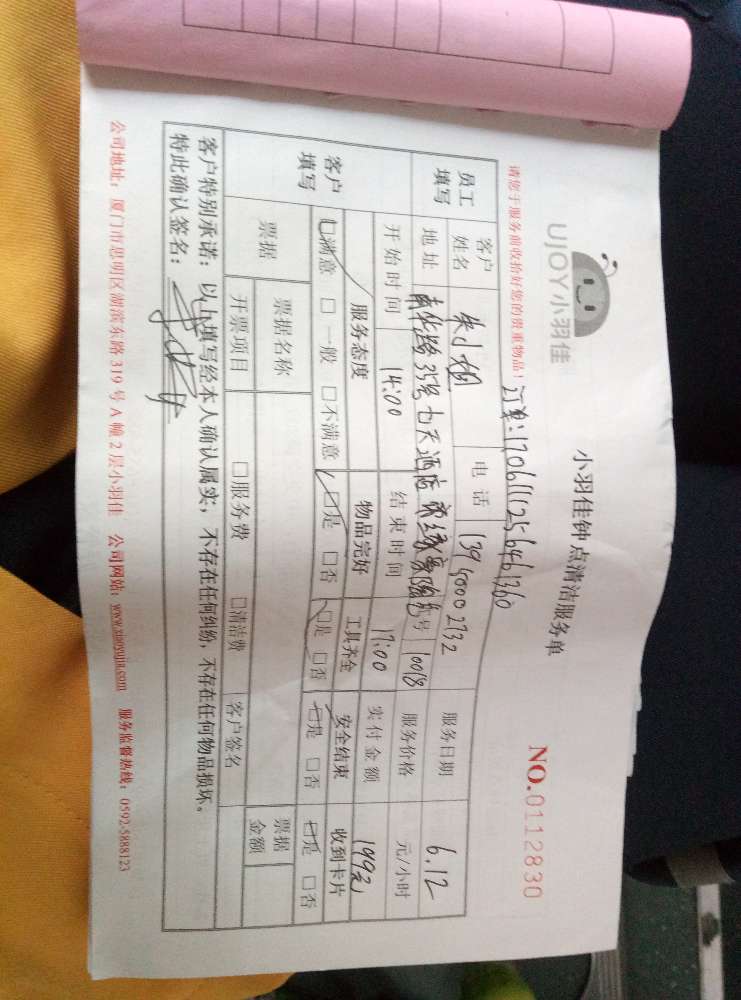 UJOY小羽佳
小羽佳钟点清洁服务单
NO.0112830
请您于服务前收拾好您的贵重物品！
订单:1706111256461360
员工填写 客户姓名 朱小姐 电话 13940002732 服务日期 6.12
地址 南华路31号七天酒店 号 10018 服务价格 元/小时
开始时间 14:00 结束时间 17:00 实付金额 149元
客户填写 服务态度 物品完好 工具齐全 安全结束 收到卡片
满意 □一般 □不满意 □是 □否 □是 □否 □是 □否 □是 □否
票据 票据名称 票据金额
开票项目 □服务费 □清洁费 客户签名
客户特别承诺：以上填写经本人确认属实，不存在任何纠纷，不存在任何物品损坏。
特此确认签名：
公司地址：厦门市思明区湖滨东路319号A幢2层小羽佳 公司网站：www.xiaoyujia.com 服务监督热线：0592-5888123